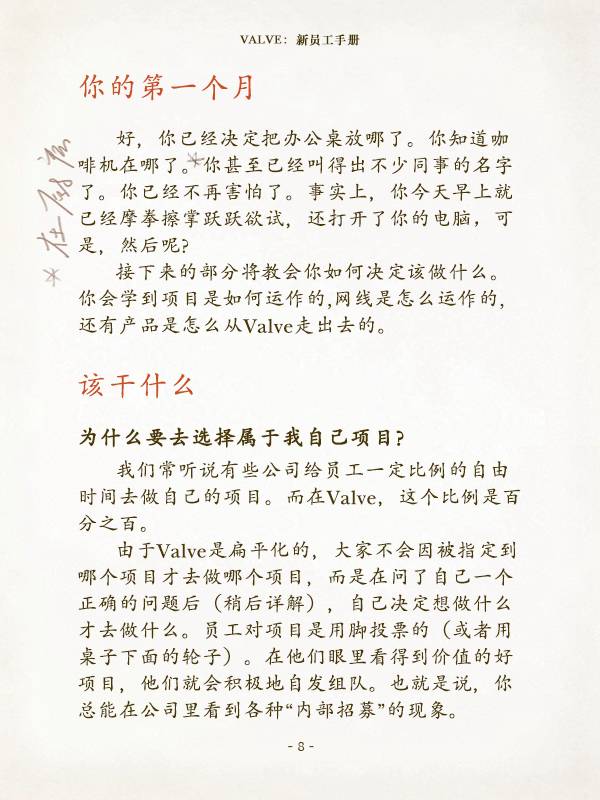 VALVE：新员工手册
你的第一个月
好，你已经决定把办公桌放哪了。你知道咖
啡机在哪了。*你甚至已经叫得出不少同事的名字
了。你已经不再害怕了。事实上，你今天早上就
已经摩拳擦掌跃跃欲试，还打开了你的电脑，可
是，然后呢?
接下来的部分将教会你如何决定该做什么。
你会学到项目是如何运作的,网线是怎么运作的，
还有产品是怎么从Valve走出去的。
* 在厨房
该干什么
为什么要去选择属于我自己项目?
我们常听说有些公司给员工一定比例的自由
时间去做自己的项目。而在Valve，这个比例是百
分之百。
由于Valve是扁平化的，大家不会因被指定到
哪个项目才去做哪个项目，而是在问了自己一个
正确的问题后（稍后详解），自己决定想做什么
才去做什么。员工对项目是用脚投票的（或者用
桌子下面的轮子）。在他们眼里看得到价值的好
项目，他们就会积极地自发组队。也就是说，你
总能在公司里看到各种“内部招募”的现象。
- 8 -